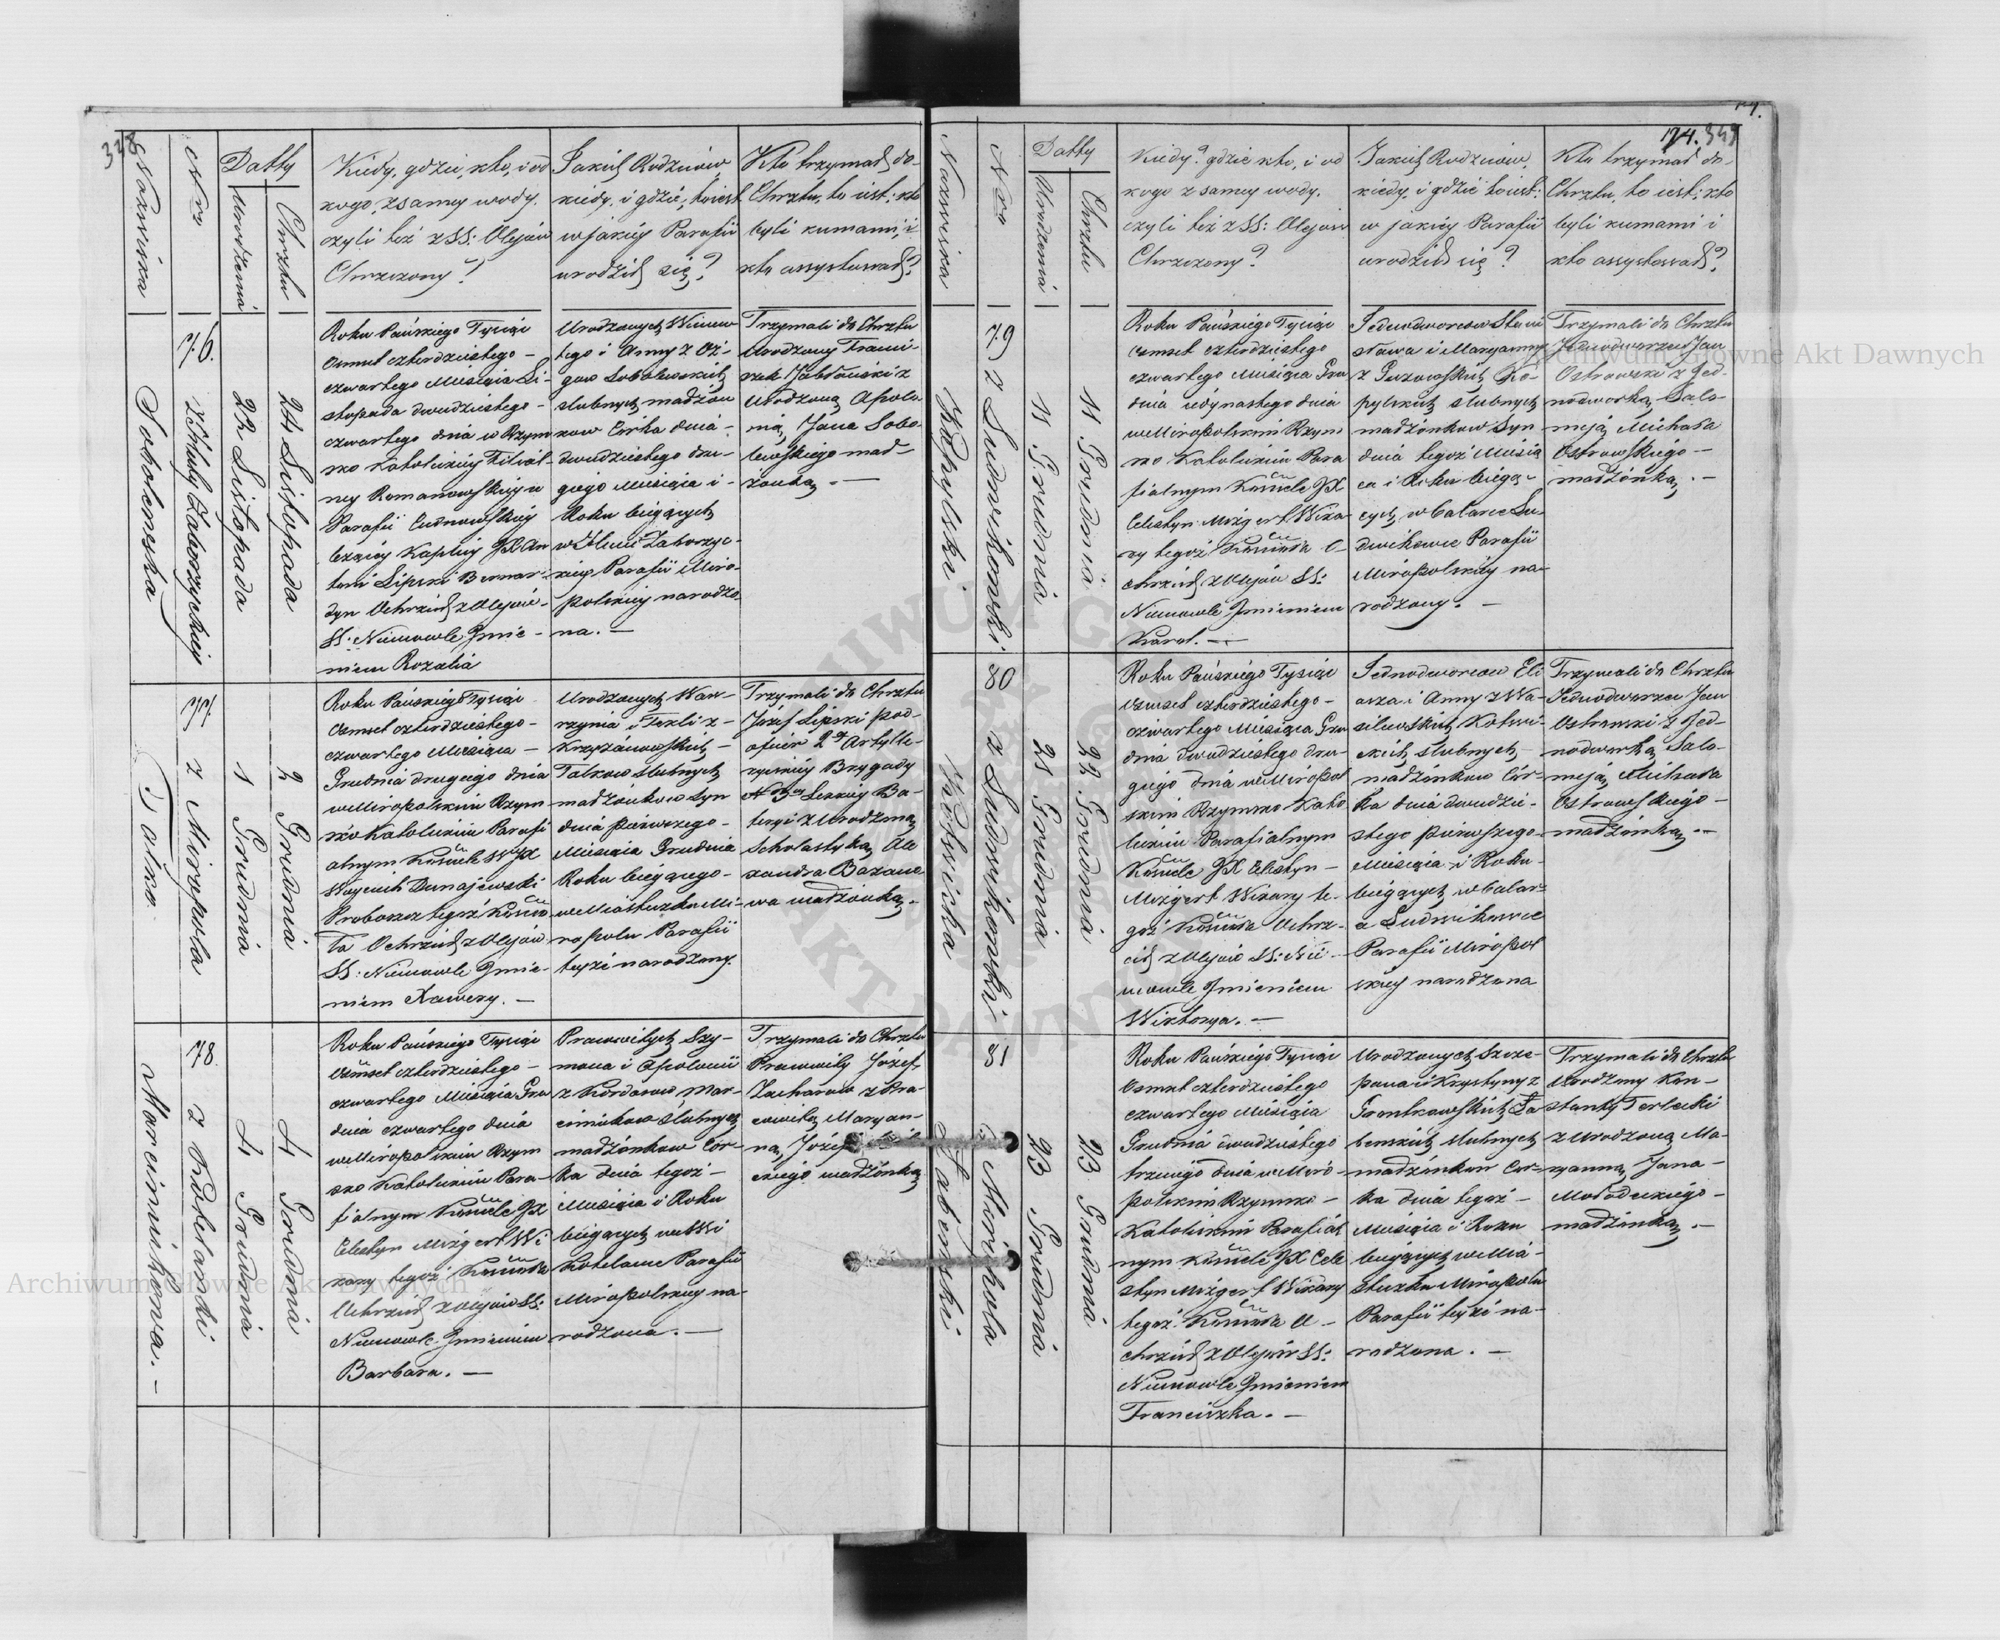 348
Nazwiska
Nro
Datty
Urodzenia
Chrztu
Kiedy, gdzie, kto, i od
kogo, z samey wody.
czyli też z SS: Olejów
Chrzczony?
Jakich Rodziców,
kiedy, i gdzie, to iest
w jakiey Parafii
urodził się?
Kto trzymał do
Chrztu, to iest: kto
byli kumami, i
kto assystował?
Sobolewska
76.
22 Listopada
24 Listopada
Roku Pańskiego Tysiąc
Osmset czterdziestego –
czwartego Miesiąca Li-
stopada dwudziestego –
czwartego dnia w Rzym
sko Katolickiey Filial-
ney Romanowskiey w
Parafii Cudnowskiey
leżącey Kaplicy JX An
toni Lipski Bernar-
dyn Ochrzcił z Olejów –
SS: Niemowle Imie –
niem Rozalia
Urodzonych Wincen
tego i Anny z Oż-
gow Sobolewskich
slubnych małżon
kow Córka dnia –
dwudziestego dru-
giego Miesiąca i –
Roku bieżących
Parafii Miro-
polskiey narodzo
na. –
Trzymali do Chrztu
Urodzony Franci-
szek Jabłoński z
Urodzoną Apolo
nią, Jana Sobo-
lewskiego mał-
żonką. –
Tatko.
77
z Miropola
1 Grudnia
2 Grudnia
Roku Pańskiego Tysiąc
Osmset czterdziestego –
czwartego Miesiąca –
Grudnia drugiego dnia
w Miropolskim Rzym
sko Katolickim Parafi
alnym Kościele JX
Woyciech Dunajewski
Proboszcz tegoż Kościo
ła Ochrzcił z Olejów
SS: Niemowle Imie-
niem Xawery. –
Urodzonych Waw-
rzynca i Tekli z –
Krzyżanowskich –
Tatkow slubnych
małżonkow Syn
dnia pierwszego –
Miesiąca Grudnia
Roku bieżącego –
w Miasteczku Mi-
ropolu Parafii
teyże narodzony.
Trzymali do Chrztu
Józef Lipski pod-
oficer 2ey Artylle-
ryiskiey Brygady
N 3ey Lekkiey Ba-
teryi z Urodzoną
Scholastyką Ale
xandra Bazano
wa małżonką.
Marcinnikowa. –
78
4 Grudnia
4 Grudnia
Roku Pańskiego Tysiąc
Osmset czterdziestego –
czwartego Miesiąca Gru
dnia czwartego dnia
w Miropolskim Rzym
sko Katolickim Para-
fialnym Kościele JX
Celestyn Mizgert Wi-
kary tegoż Kościoła
Ochrzcił z Olejów SS:
Niemowle Imieniem
Barbara. –
Prawowitych Szy-
mona i Apolonii
z Kordasow Mar-
cinnikow slubnych
małżonkow Cór-
ka dnia tegoż –
Miesiąca i Roku
bieżących we Wsi
Parafii
Miropolskiey na-
rodzona. –
Trzymali do Chrztu
Prawowity Jozef
Zacharow z Pra-
wowitą Maryan-
ną, Józefa
małżonką
174. 349
Nazwiska
Nro
Datty
Urodzenia
Chrztu
Kiedy? gdzie kto, i od
kogo z samey wody.
czyli też z SS: Olejow
Chrzczony?
Jakich Rodziców,
kiedy, i gdzie to iest:
w jakiey Parafii
urodził się?
Kto trzymał do
Chrztu, to iest: kto
byli kumami i
kto assystował?
Kopylski.
79
z Ludwikowki
11 Grudnia
11 Grudnia
Roku Pańskiego Tysiąc
Osmset czterdziestego
czwartego Miesiąca Gru
dnia iedynastego dnia
w Miropolskim Rzym
sko Katolickim Para
fialnym Kościele JX
Celestyn Mizgert Wika
ry tegoż Kościoła O-
chrzcił z Olejów SS:
Niemowle Imieniem
Karol. –
Jednodworcow Stani
sława i Maryanny
Ko-
pylskich slubnych
małżonkow Syn
dnia tegoż Miesią
ca i Roku bieżą-
cych, w Futorze Lu-
dwikowce Parafii
Miropolskiey na-
rodzony. –
Trzymali do Chrztu
Jednodworzec Jan
Ostrowski z Jed-
nodworką Salo-
meją Michała
Ostrowskiego –
małżonką. –
80
z Ludwikowki
21 Grudnia
22 Grudnia
Roku Pańskiego Tysiąc
Osmset czterdziestego –
czwartego Miesiąca Gru
dnia dwudziestego dru-
giego dnia w Miropol
skim Rzymsko Kato
lickim Parafialnym
Kościele JX Celestyn –
Mizgert Wikary te-
goż Kościoła Ochrz-
cił z Olejów SS: Nie-
mowle Imieniem
Wiktorya. –
Jednodworcow Eli
asza i Anny z Wa-
silewskich
slubnych –
małżonkow Cór-
ka dnia dwudzie-
stego pierwszego
Miesiąca i Roku –
bieżących
Ludwikowce
Parafii Miropol
skiey narodzona
Trzymali do Chrztu
Jednodworzec Jan
Ostrowski z Jed-
nodworką Salo-
meją Michała
Ostrowskiego –
małżonką. –
81
23 Grudnia
23 Grudnia
Roku Pańskiego Tysiąc
Osmset czterdziestego
czwartego Miesiąca
Grudnia dwudziestego
trzeciego dnia w Miro-
polskim Rzymsko –
Katolickim Parafial
nym Kościele JX Cele
styn Mizgert Wikary
tegoż Kościoła O –
chrzcił z Olejów SS:
Niemowle Imieniem
Franciszka. –
Urodzonych Szcze-
pana i Krystyny z
slubnych
małżonkow Cór-
ka dnia tegoż –
Miesiąca i Roku
bieżących w Mia-
steczku Miropolu
Parafii teyże na-
rodzona. –
Trzymali do Chrztu
Urodzony Kon-
stanty Terlecki
z Urodzoną Ma-
ryanną Jana –
Mołodeckiego –
małżonką. –
Archiwum Główne Akt Dawnych
Archiwum Główne Akt Dawnych